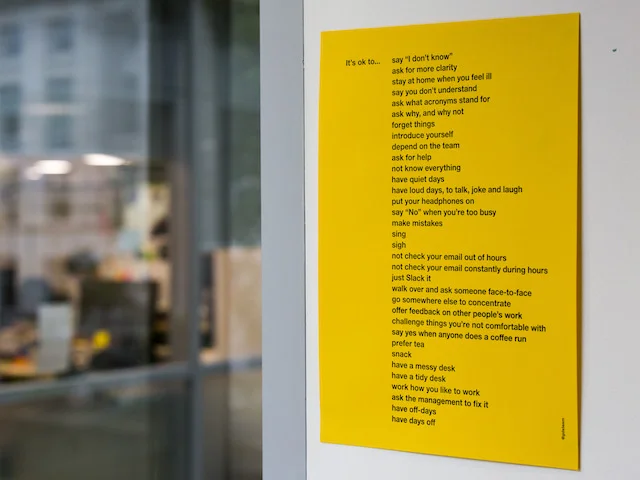 It's ok to... say "I don't know"
ask for more clarity
stay at home when you feel ill
say you don't understand
ask what acronyms stand for
ask why, and why not
forget things
introduce yourself
depend on the team
ask for help
not know everything
have quiet days
have loud days, to talk, joke and laugh
put your headphones on
say "No" when you're too busy
make mistakes
sing
sigh
not check your email out of hours
not check your email constantly during hours
just Slack it
walk over and ask someone face-to-face
go somewhere else to concentrate
offer feedback on other people's work
challenge things you're not comfortable with
say yes when anyone does a coffee run
prefer tea
snack
have a messy desk
have a tidy desk
work how you like to work
ask the management to fix it
have off-days
have days off